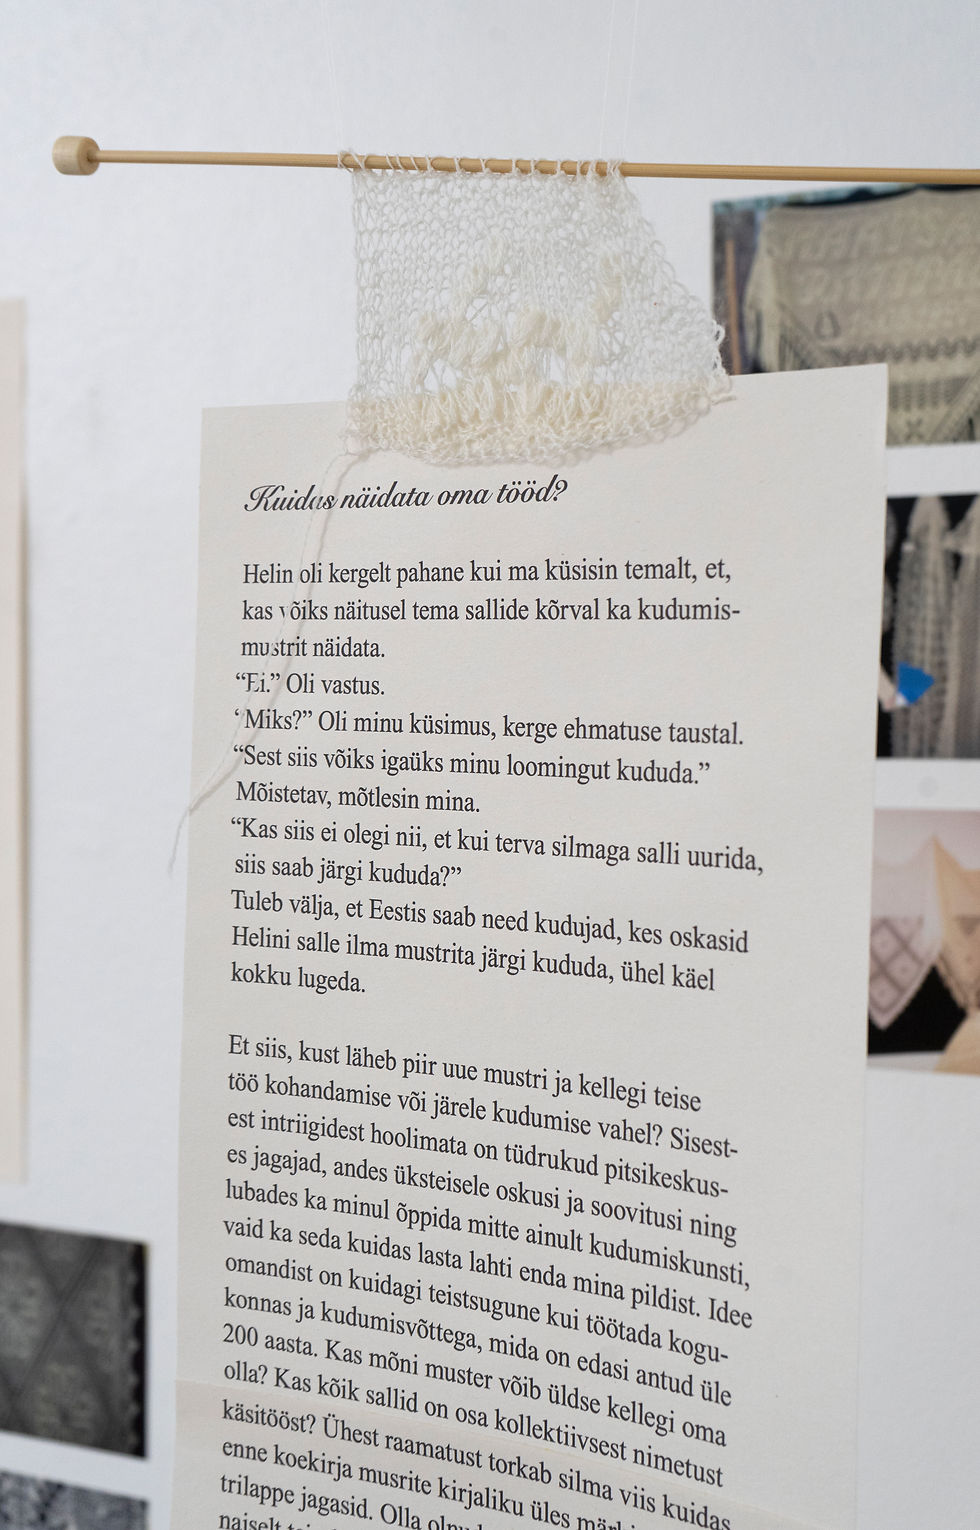 Kuidas näidata oma tööd?
Helin oli kergelt pahane kui ma küsisin temalt, et,
kas võiks näitusel tema sallide kõrval ka kudumis-
mustrit näidata.
“Ei.” Oli vastus.
“Miks?” Oli minu küsimus, kerge ehmatuse taustal.
“Sest siis võiks igaüks minu loomingut kududa.”
Mõistetav, mõtlesin mina.
“Kas siis ei olegi nii, et kui terva silmaga salli uurida,
siis saab järgi kududa?”
Tuleb välja, et Eestis saab need kudujad, kes oskasid
Helini salle ilma mustrita järgi kududa, ühel käel
kokku lugeda.
Et siis, kust läheb piir uue mustri ja kellegi teise
töö kohandamise või järele kudumise vahel? Sisest-
est intriigidest hoolimata on tüdrukud pitsikeskus-
es jagajad, andes üksteisele oskusi ja soovitusi ning
lubades ka minul õppida mitte ainult kudumiskunsti,
vaid ka seda kuidas lasta lahti enda mina pildist. Idee
omandist on kuidagi teistsugune kui töötada kogu-
konnas ja kudumisvõttega, mida on edasi antud üle
200 aasta. Kas mõni muster võib üldse kellegi oma
olla? Kas kõik sallid on osa kollektiivsest nimetust
käsitööst? Ühest raamatust torkab silma viis kuidas
enne koekirja musrite kirjaliku üles
trilappe jagasid. Olla
naiselt